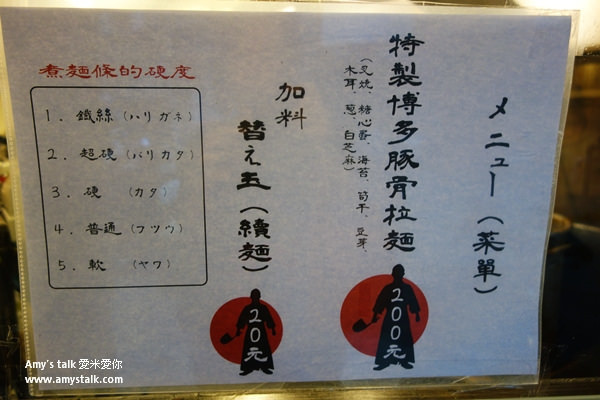 メニュー（菜單）
特製博多豚骨拉麵
（叉燒、糖心蛋、海苔、筍干、豆芽、
木耳、蔥、白芝麻）
200元
加料
替え玉（續麵）
20元
煮麵條的硬度
1. 鐵絲（ハリガネ）
2. 超硬（バリカタ）
3. 硬（カタ）
4. 普通（フツウ）
5. 軟（ヤワ）
Amy's talk 愛米愛你
www.amystalk.com